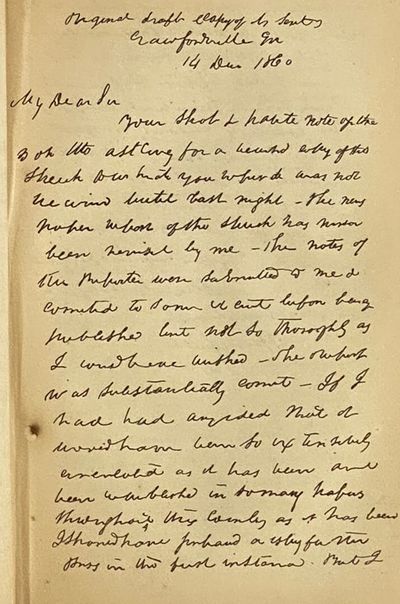 Original draft & copy of ls sent
Crawfordville Ga
14 Dec 1860
My Dear Sir
Your short & polite note of the
asking for a revised copy of the
speech to which you refer was not
received until last night - The news
paper report of the speech has never
been revised by me - The notes of
the Reporter were submitted to me &
corrected to some extent before being
published but not so thoroughly as
I could have wished - The report
was substantially correct - If I
had had any idea that it
would have been so extensively
circulated as it has been and
been republished in so many papers
throughout the Country as it has been
I should have prepared a copy for the
press in the first instance. But I